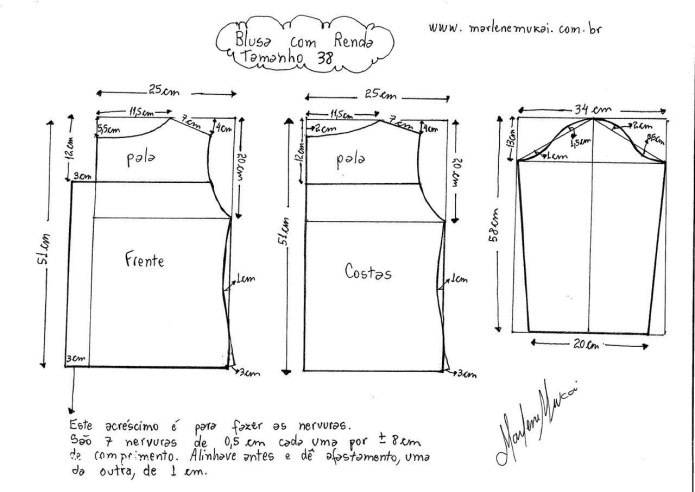 Blusa com Renda
Tamanho 38
www. marlenemukai.com.br
25cm
11,5cm
7cm
5,5cm
4cm
12cm
20cm
pala
3cm
51cm
Frente
1cm
3cm
3cm
25cm
11,5cm
7cm
2cm
4cm
12cm
20cm
pala
51cm
Costas
1cm
3cm
34 cm
13cm
2cm
1,5cm
1cm
58cm
20cm
Este acréscimo é para fazer as nervuras.
São 7 nervuras de 0,5 cm cada uma por ± 8cm
de comprimento. Alinhave antes e dê afastamento, uma
da outra, de 1 cm.
Marlene Mukai